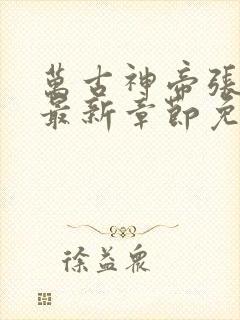 萬古神帝張
最新章節免
徐益眾